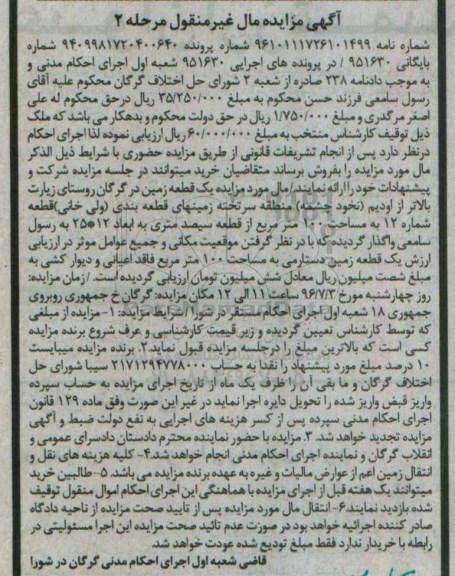 آگهی مزایده مال غیرمنقول مرحله ۲
شماره نامه ۹۶۱۰۱۱۱۷۲۶۱۰۱۴۹۹ شماره پرونده ۹۴۰۹۹۸۱۷۲۰۴۰۰۶۴۰ شماره
بایگانی ۹۵۱۶۳۰ / در پرونده های اجرایی ۹۵۱۶۳۰ شعبه اول اجرای احکام مدنی و
به موجب دادنامه ۲۳۸ صادره از شعبه ۲ شورای حل اختلاف گرگان محکوم علیه آقای
رسول سامعی فرزند حسن محکوم به مبلغ ۳۵/۲۵۰/۰۰۰ ریال درحق محکوم له علی
اصغر مرگدری و مبلغ ۱/۷۵۰/۰۰۰ ریال در حق دولت محکوم و بدهکار می باشد که ملک
ذیل توقیف کارشناس منتخب به مبلغ ۶۰/۰۰۰/۰۰۰ ریال ارزیابی نموده لذا اجرای احکام
درنظر دارد پس از انجام تشریفات قانونی از طریق مزایده حضوری با شرایط ذیل الذکر
مال مورد مزایده را بفروش برساند متقاضیان خرید میتوانند در جلسه مزایده شرکت و
پیشنهادات خود را ارائه نمایند./مال مورد مزایده یک قطعه زمین در گرگان روستای زیارت
بالاتر از اودیم (نخود چشمه) منطقه سرتخته زمینهای قطعه بندی (ولی خانی)قطعه
شماره ۱۲ به مساحت ۱۰۰ متر مربع از قطعه سیصد متری به ابعاد ۱۲*۲۵ به رسول
سامعی واگذار گردیده که با در نظر گرفتن موقعیت مکانی و جمیع عوامل موثر در ارزیابی
ارزش یک قطعه زمین دستارمی به مساحت ۱۰۰ متر مربع فاقد اعیانی و دیوار کشی به
مبلغ شصت میلیون ریال معادل شش میلیون تومان ارزیابی گردیده است. /زمان مزایده:
روز چهارشنبه مورخ ۹۶/۷/۳ ساعت ۱۱ الی ۱۲ مکان مزایده: گرگان خ جمهوری روبروی
جمهوری ۱۸ شعبه اول اجرای احکام مستقر در شورا /شرایط مزایده: ۱-مزایده از مبلغی
که توسط کارشناس تعیین گردیده و زیر قیمت کارشناسی و عرف شروع برنده مزایده
کسی است که بالاترین مبلغ را درجلسه مزایده قبول نماید.۲. برنده مزایده میبایست
۱۰ درصد مبلغ مورد پیشنهاد را نقدا به حساب ۲۱۷۱۲۹۴۷۷۸۰۰۰ سیبا شورای حل
اختلاف گرگان و ما بقی آن را ظرف یک ماه از تاریخ اجرای مزایده به حساب سپرده
واریز قبض واریز شده را تحویل دایره اجرا نماید در غیر این صورت وفق ماده ۱۲۹ قانون
اجرای احکام مدنی سپرده پس از کسر هزینه های اجرایی به نفع دولت ضبط و آگهی
مزایده تجدید خواهد شد. ۳.مزایده با حضور نماینده محترم دادستان دادسرای عمومی و
انقلاب گرگان و نماینده اجرای احکام مدنی انجام خواهد شد.۴- کلیه هزینه های نقل و
انتقال زمین اعم از عوارض مالیات و غیره به عهده برنده مزایده می باشد. ۵-طالبین خرید
میتوانند یک هفته قبل از اجرای مزایده با هماهنگی این اجرای احکام اموال منقول توقیف
شده بازدید نمایند.۶- انتقال مال مورد مزایده پس از تایید صحت مزایده از ناحیه دادگاه
صادر کننده اجرائیه خواهد بود در صورت عدم تائید صحت مزایده این اجرا مسئولیتی در
رابطه با خریدار ندارد فقط مبلغ تودیع شده عودت خواهد شد.
قاضی شعبه اول اجرای احکام مدنی گرگان در شورا